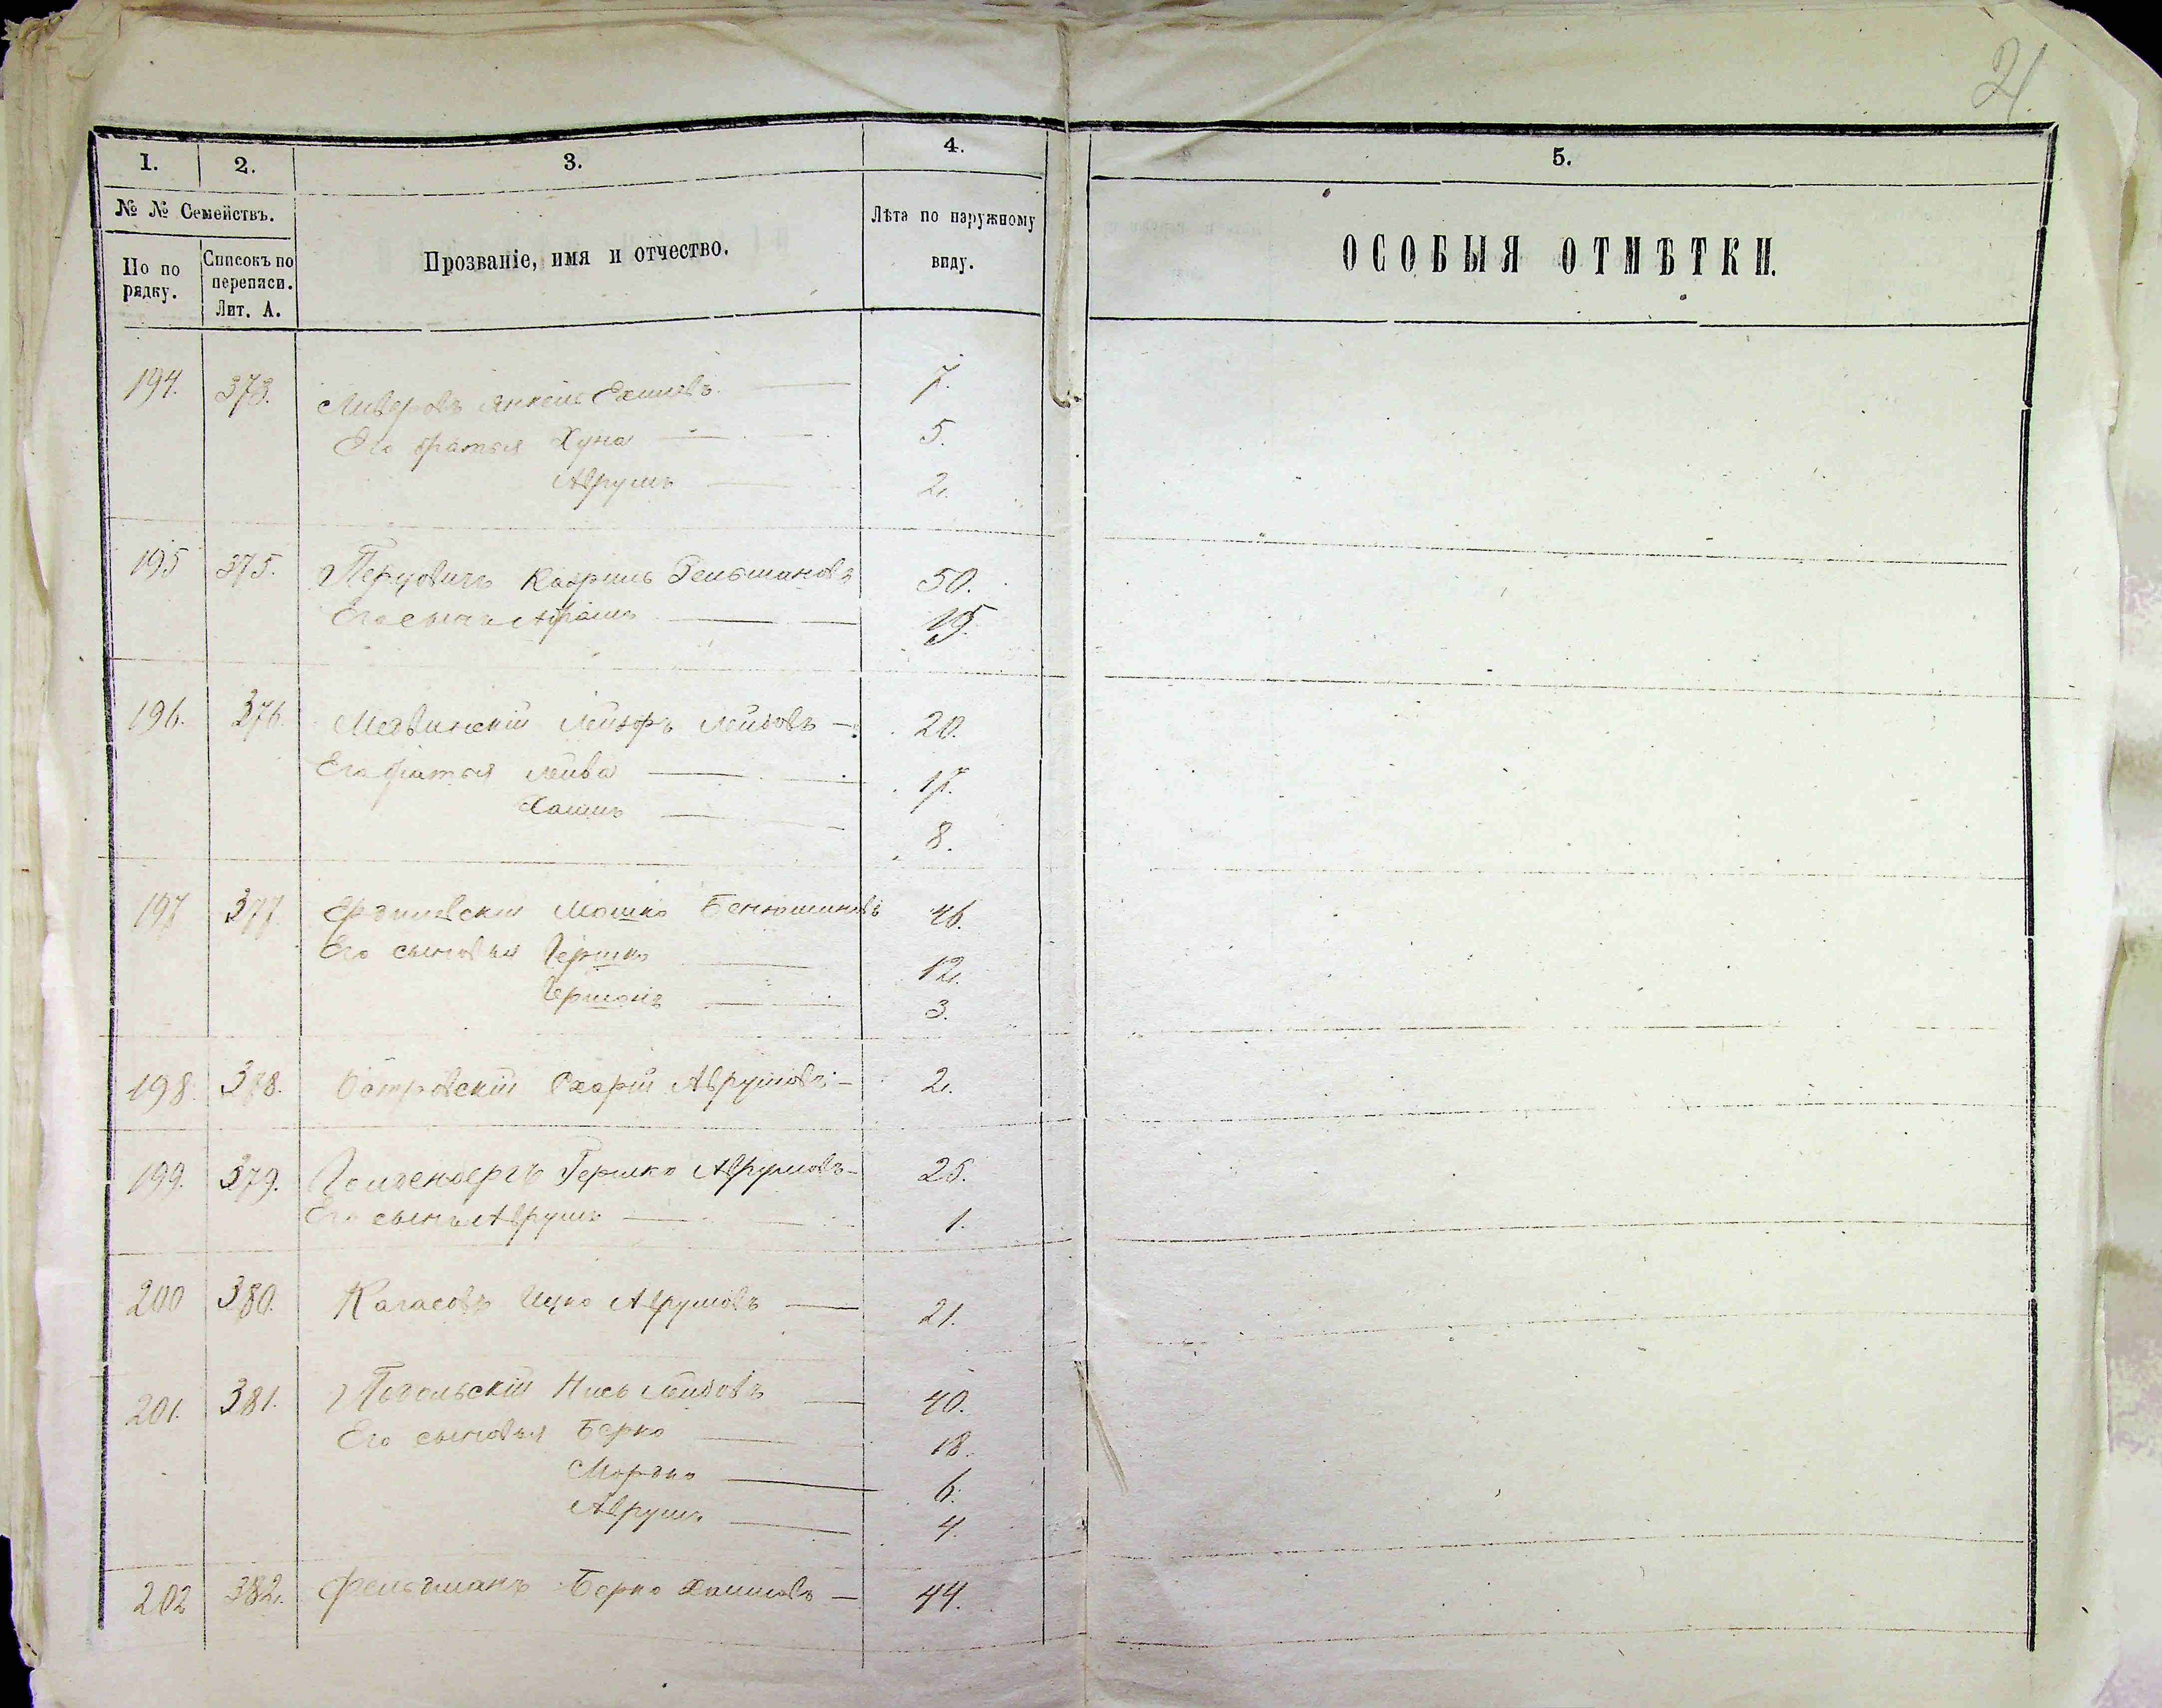 21
1.
2.
3.
4.
5.
№ № Семействъ.
По по
рядку.
Списокъ по
переписи.
Лит. А.
Прозваніе, имя и отчество.
Лѣта по наружному
виду.
ОСОБЫЯ ОТМѢТКИ.
194. 373. Янкель 7.
Его братья Хуна 5.
Аврумъ 2.
195 375. Перцовичъ 50.
Его сынъ Абрамъ 19.
196. 376. Медвинскій Лейзоръ Лейбовъ 20.
Его братья Лейба 17.
Хаимъ 8.
197 377. Мошко Бенюминовъ 46.
Его сыновья Гершко 12.
Гершонъ 3.
198. 378. Островскій Аврумовъ 2.
199. 379. Гершко Аврумовъ 25.
Его сынъ Аврумъ 1.
200 380. Кагасовъ Ицко Аврумовъ 21.
201. 381. Подольскій Нись Лейбовъ 40.
Его сыновья Берко 18.
Мордко 6.
Аврумъ 4.
202 382. Фельдманъ Берко Хаимовъ 44.